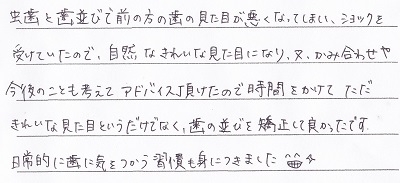 虫歯と歯並びで前の方の歯の見た目が悪くなってしまい、ショックを
受けていたので、自然なきれいな見た目になり、又、かみ合わせや
今後のことも考えてアドバイス頂けたので時間をかけて ただ
きれいな見た目というだけでなく、歯の並びを矯正して良かったです.
日常的に歯に気をつかう習慣も身につきました